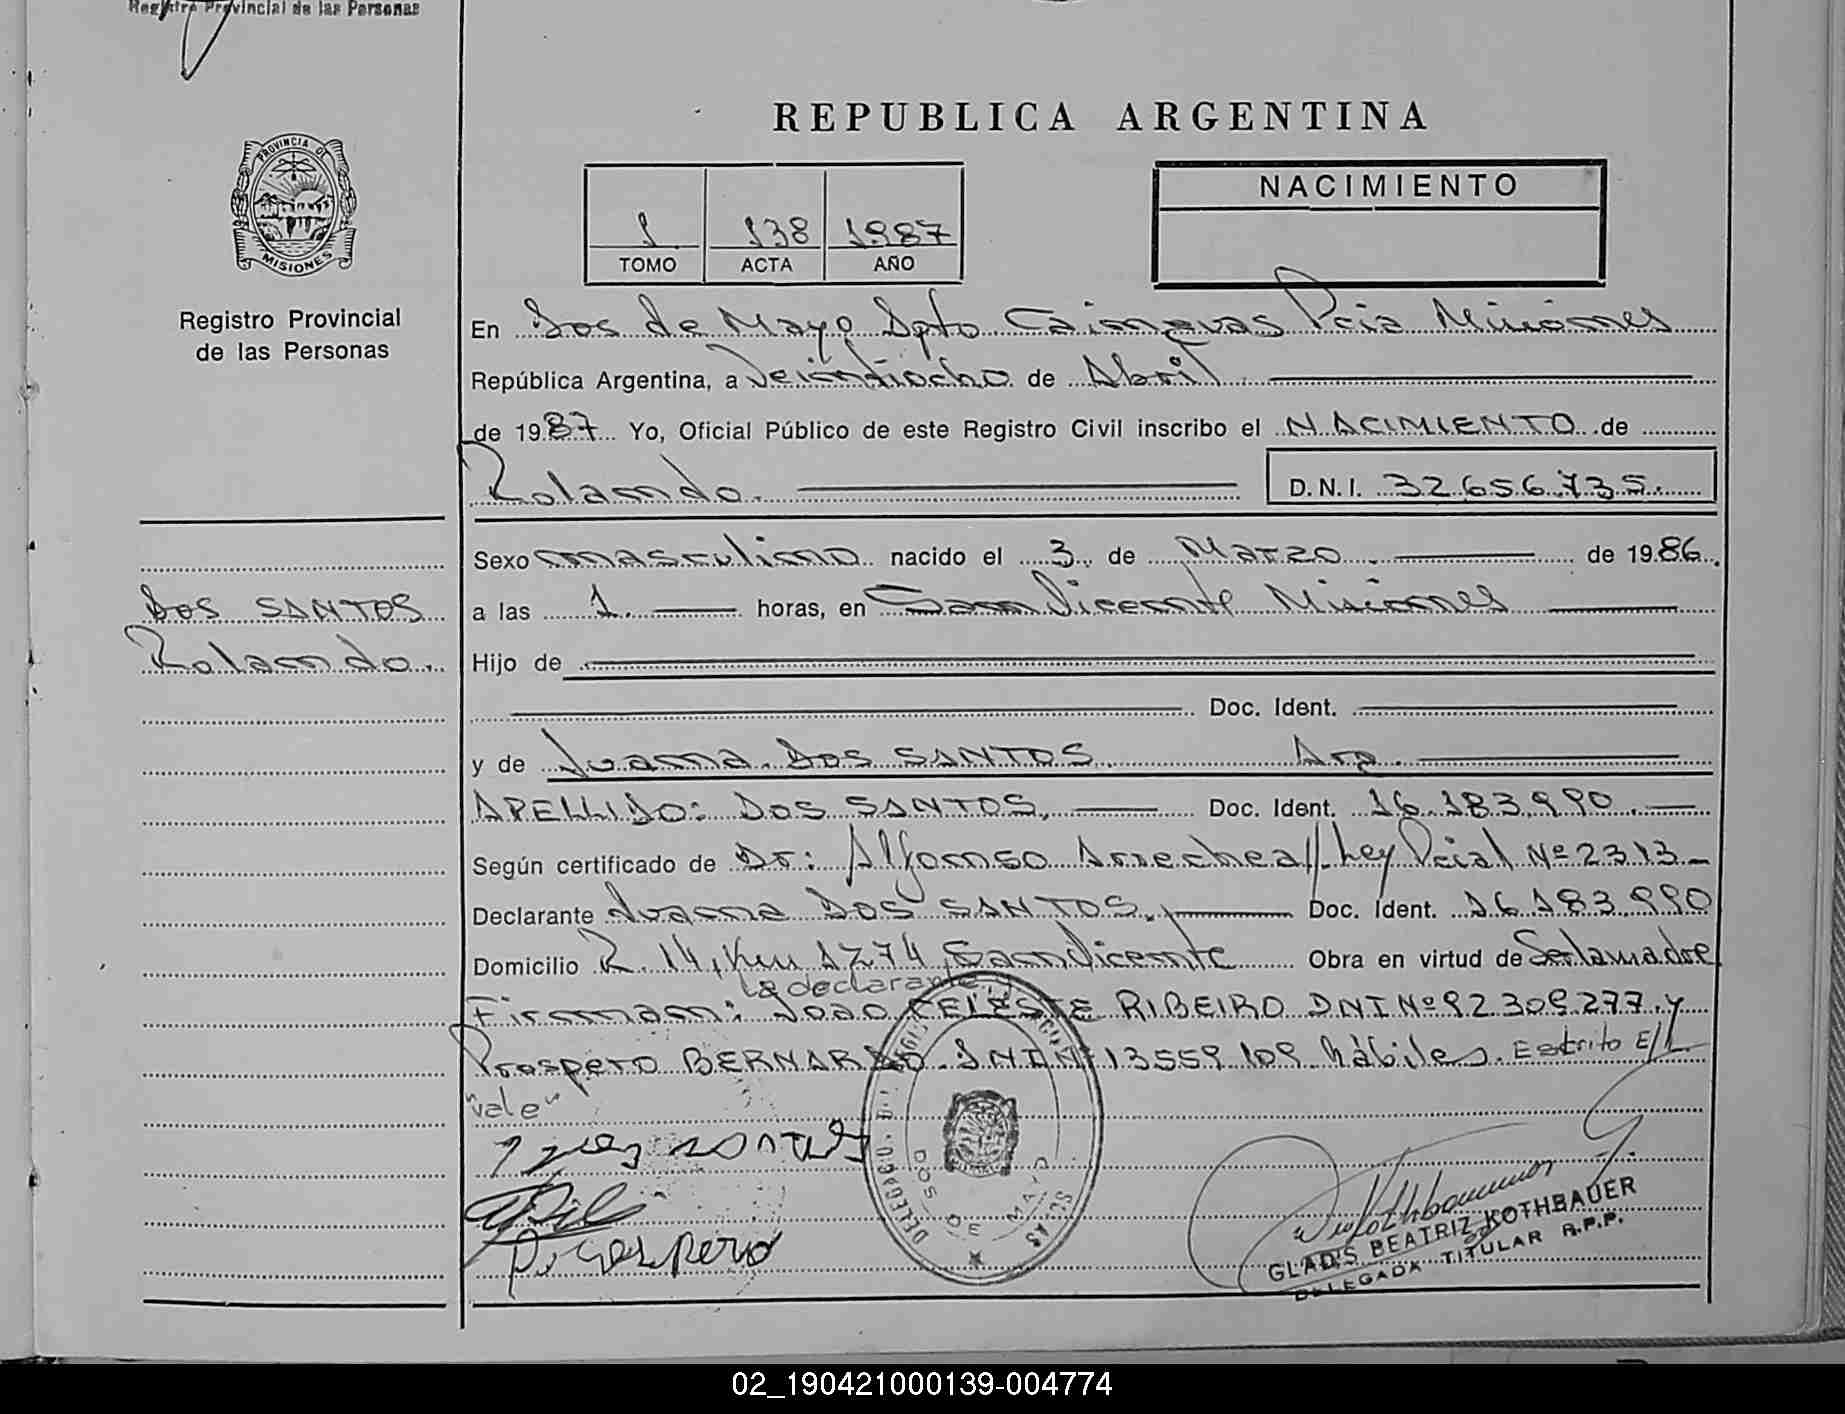 Registro Provincial de las Personas
REPUBLICA ARGENTINA
PROVINCIA DE
MISIONES
Registro Provincial
de las Personas
1 138 1987
TOMO ACTA AÑO
NACIMIENTO
En Dos de Mayo Dpto Cainguas Pcia Misiones
República Argentina, a Veintiocho de Abril
de 1987 Yo, Oficial Público de este Registro Civil inscribo el NACIMIENTO de
Rolando. D.N.I. 32.656.735.
Sexo masculino nacido el 3 de Marzo de 1986.
DOS SANTOS
Rolando.
a las 1. horas, en San Vicente Misiones
Hijo de
Doc. Ident.
y de Juana DOS SANTOS. Arg.
APELLIDO: DOS SANTOS. Doc. Ident. 16.183.990.
Según certificado de Dr: Alfonso Arrechea//Ley Pcial Nº 2313-
Declarante Juana DOS SANTOS. Doc. Ident. 16.183.990
Domicilio R. 14, Km 1274, San Vicente Obra en virtud de Ser la madre
la declarante
Firman: Joao CELESTE RIBEIRO DNI Nº 92.309.277 y
Prospero BERNARDO. DNI Nº 13559.109 hábiles. Estrito E/L
"vale"
DOS DE MAYO
GLADIS BEATRIZ KOTHBAUER
DELEGADA TITULAR R.P.P.
02_190421000139-004774